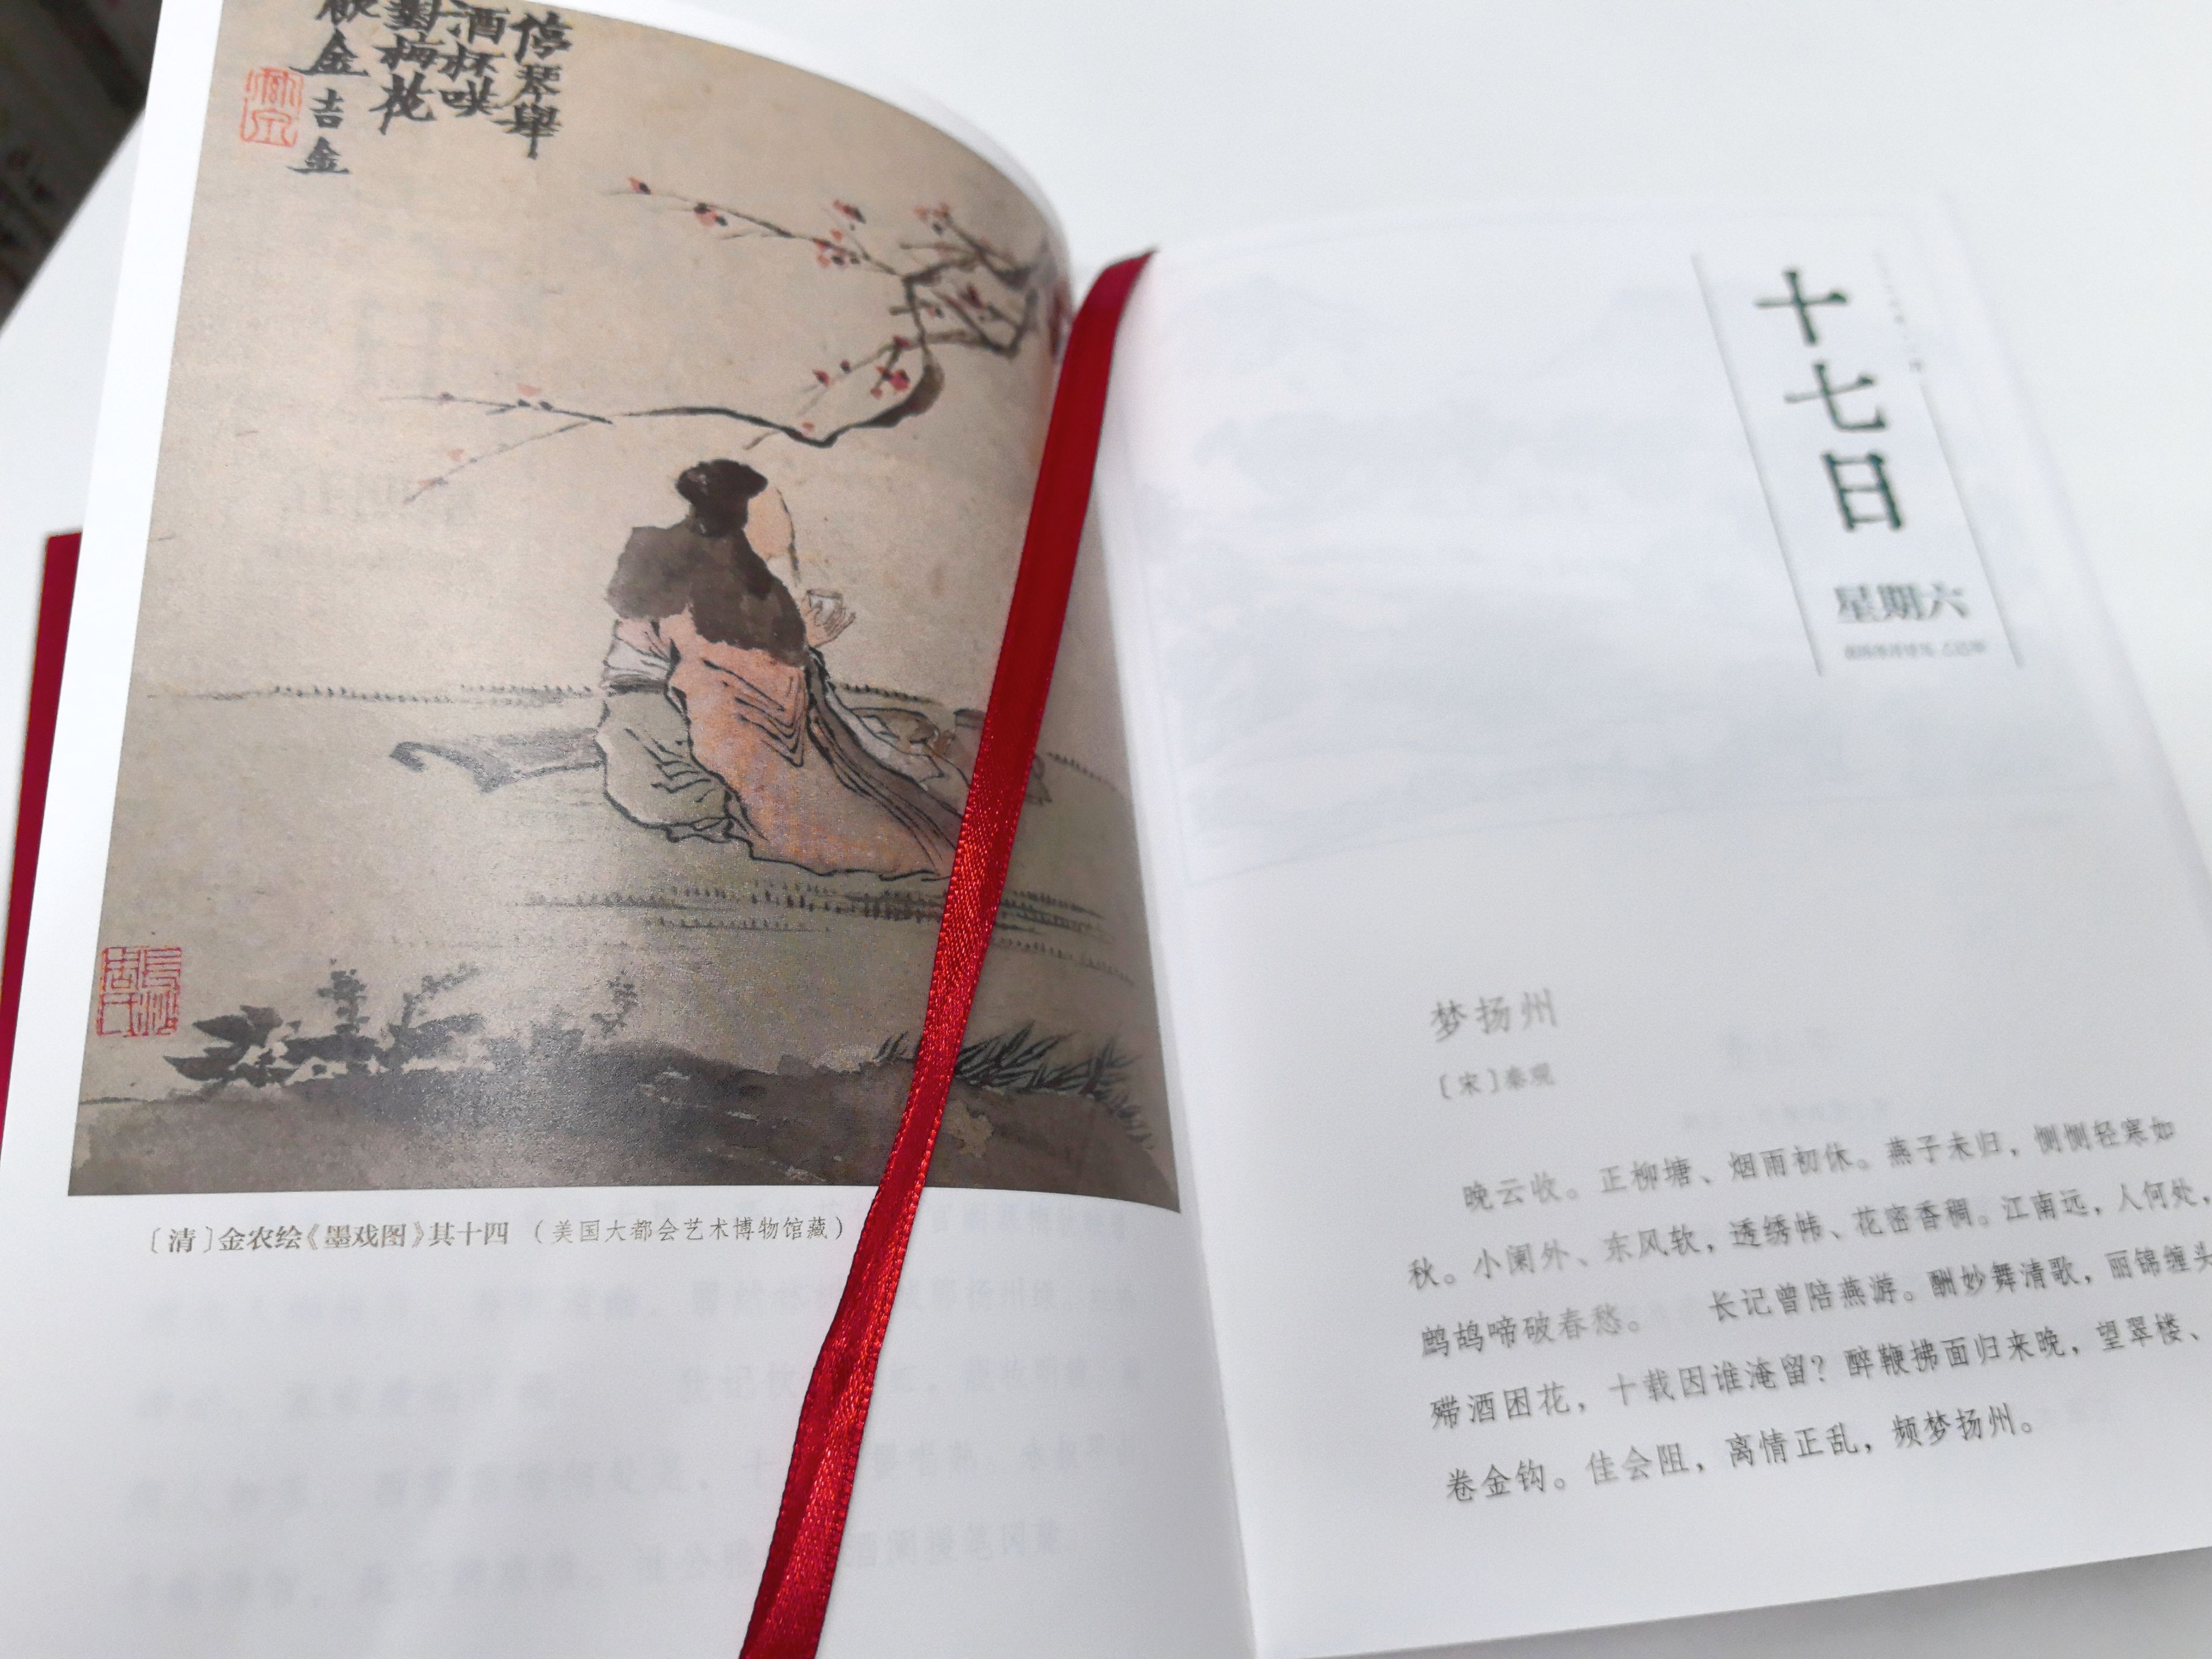 停琴舉
酒杯哄
對梅花
飲金
吉金
〔清〕金农绘《墨戏图》其十四 （美国大都会艺术博物馆藏）
十七日
星期六
梦扬州
〔宋〕秦观
晚云收。正柳塘、烟雨初休。燕子未归，恻恻轻寒如
秋。小阑外、东风软，透绣帏、花密香稠。江南远，人何处，
鹧鸪啼破春愁。 长记曾陪燕游。酬妙舞清歌，丽锦缠头
殢酒困花，十载因谁淹留？醉鞭拂面归来晚，望翠楼、
卷金钩。佳会阻，离情正乱，频梦扬州。